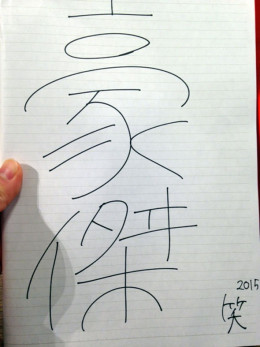 豪
傑
2015
笑